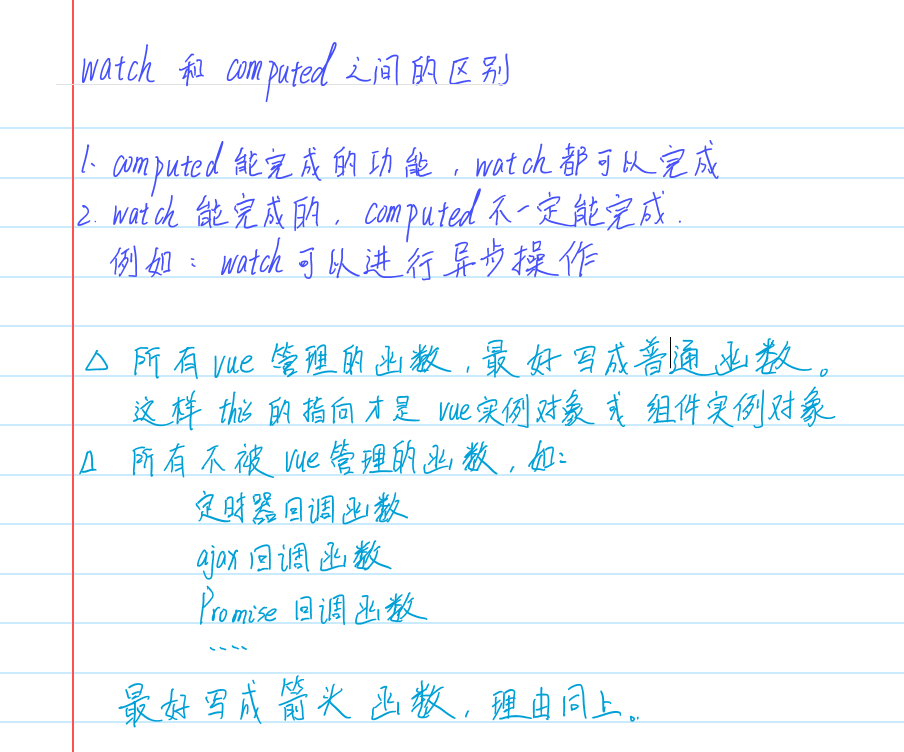 watch 和 computed 之间的区别
1. computed 能完成的功能，watch都可以完成
2. watch 能完成的，computed不一定能完成.
例如：watch可以进行异步操作
△ 所有vue 管理的函数，最好写成普通函数。
这样 this 的指向才是 vue实例对象 或 组件实例对象
△ 所有不被 vue管理的函数，如：
定时器回调函数
ajax回调函数
Promise 回调函数
....
最好写成箭头函数，理由同上。